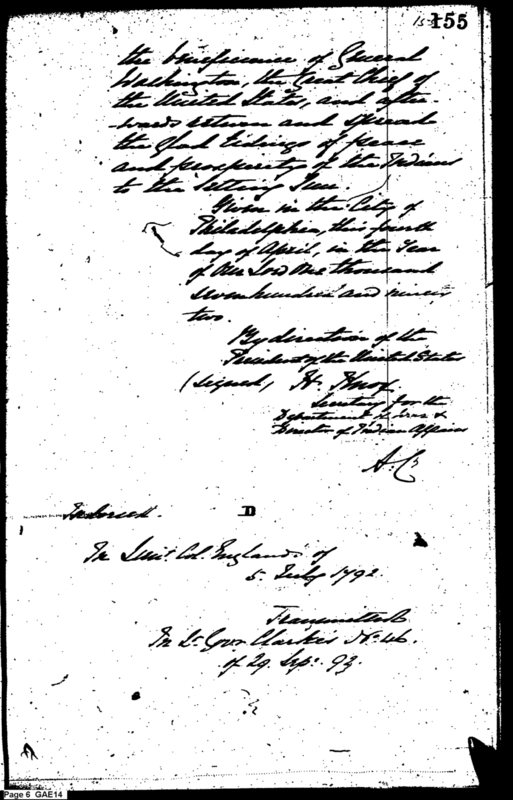 155
the beneficence of General
Washington, the Great Chief of
the United States, and after-
-wards return and spread
the Glad tidings of peace
and prosperity of the Indians
to the Setting Sun.
Given in the City of
Philadelphia, this fourth
day of April, in the Year
of Our Lord One thousand
seven hundred and ninety
two.
By direction of the
President of the United States
(signed) H. Knox
Secretary for the
Department of War &
Director of Indian Affairs
Indorsed.
D
In Lieut. Col. England's of
5. July 1792.
Transmitted
In Lt. Govr. Clarke's No. 46.
of 29 Sepr. 92.
Page 6 GAE14